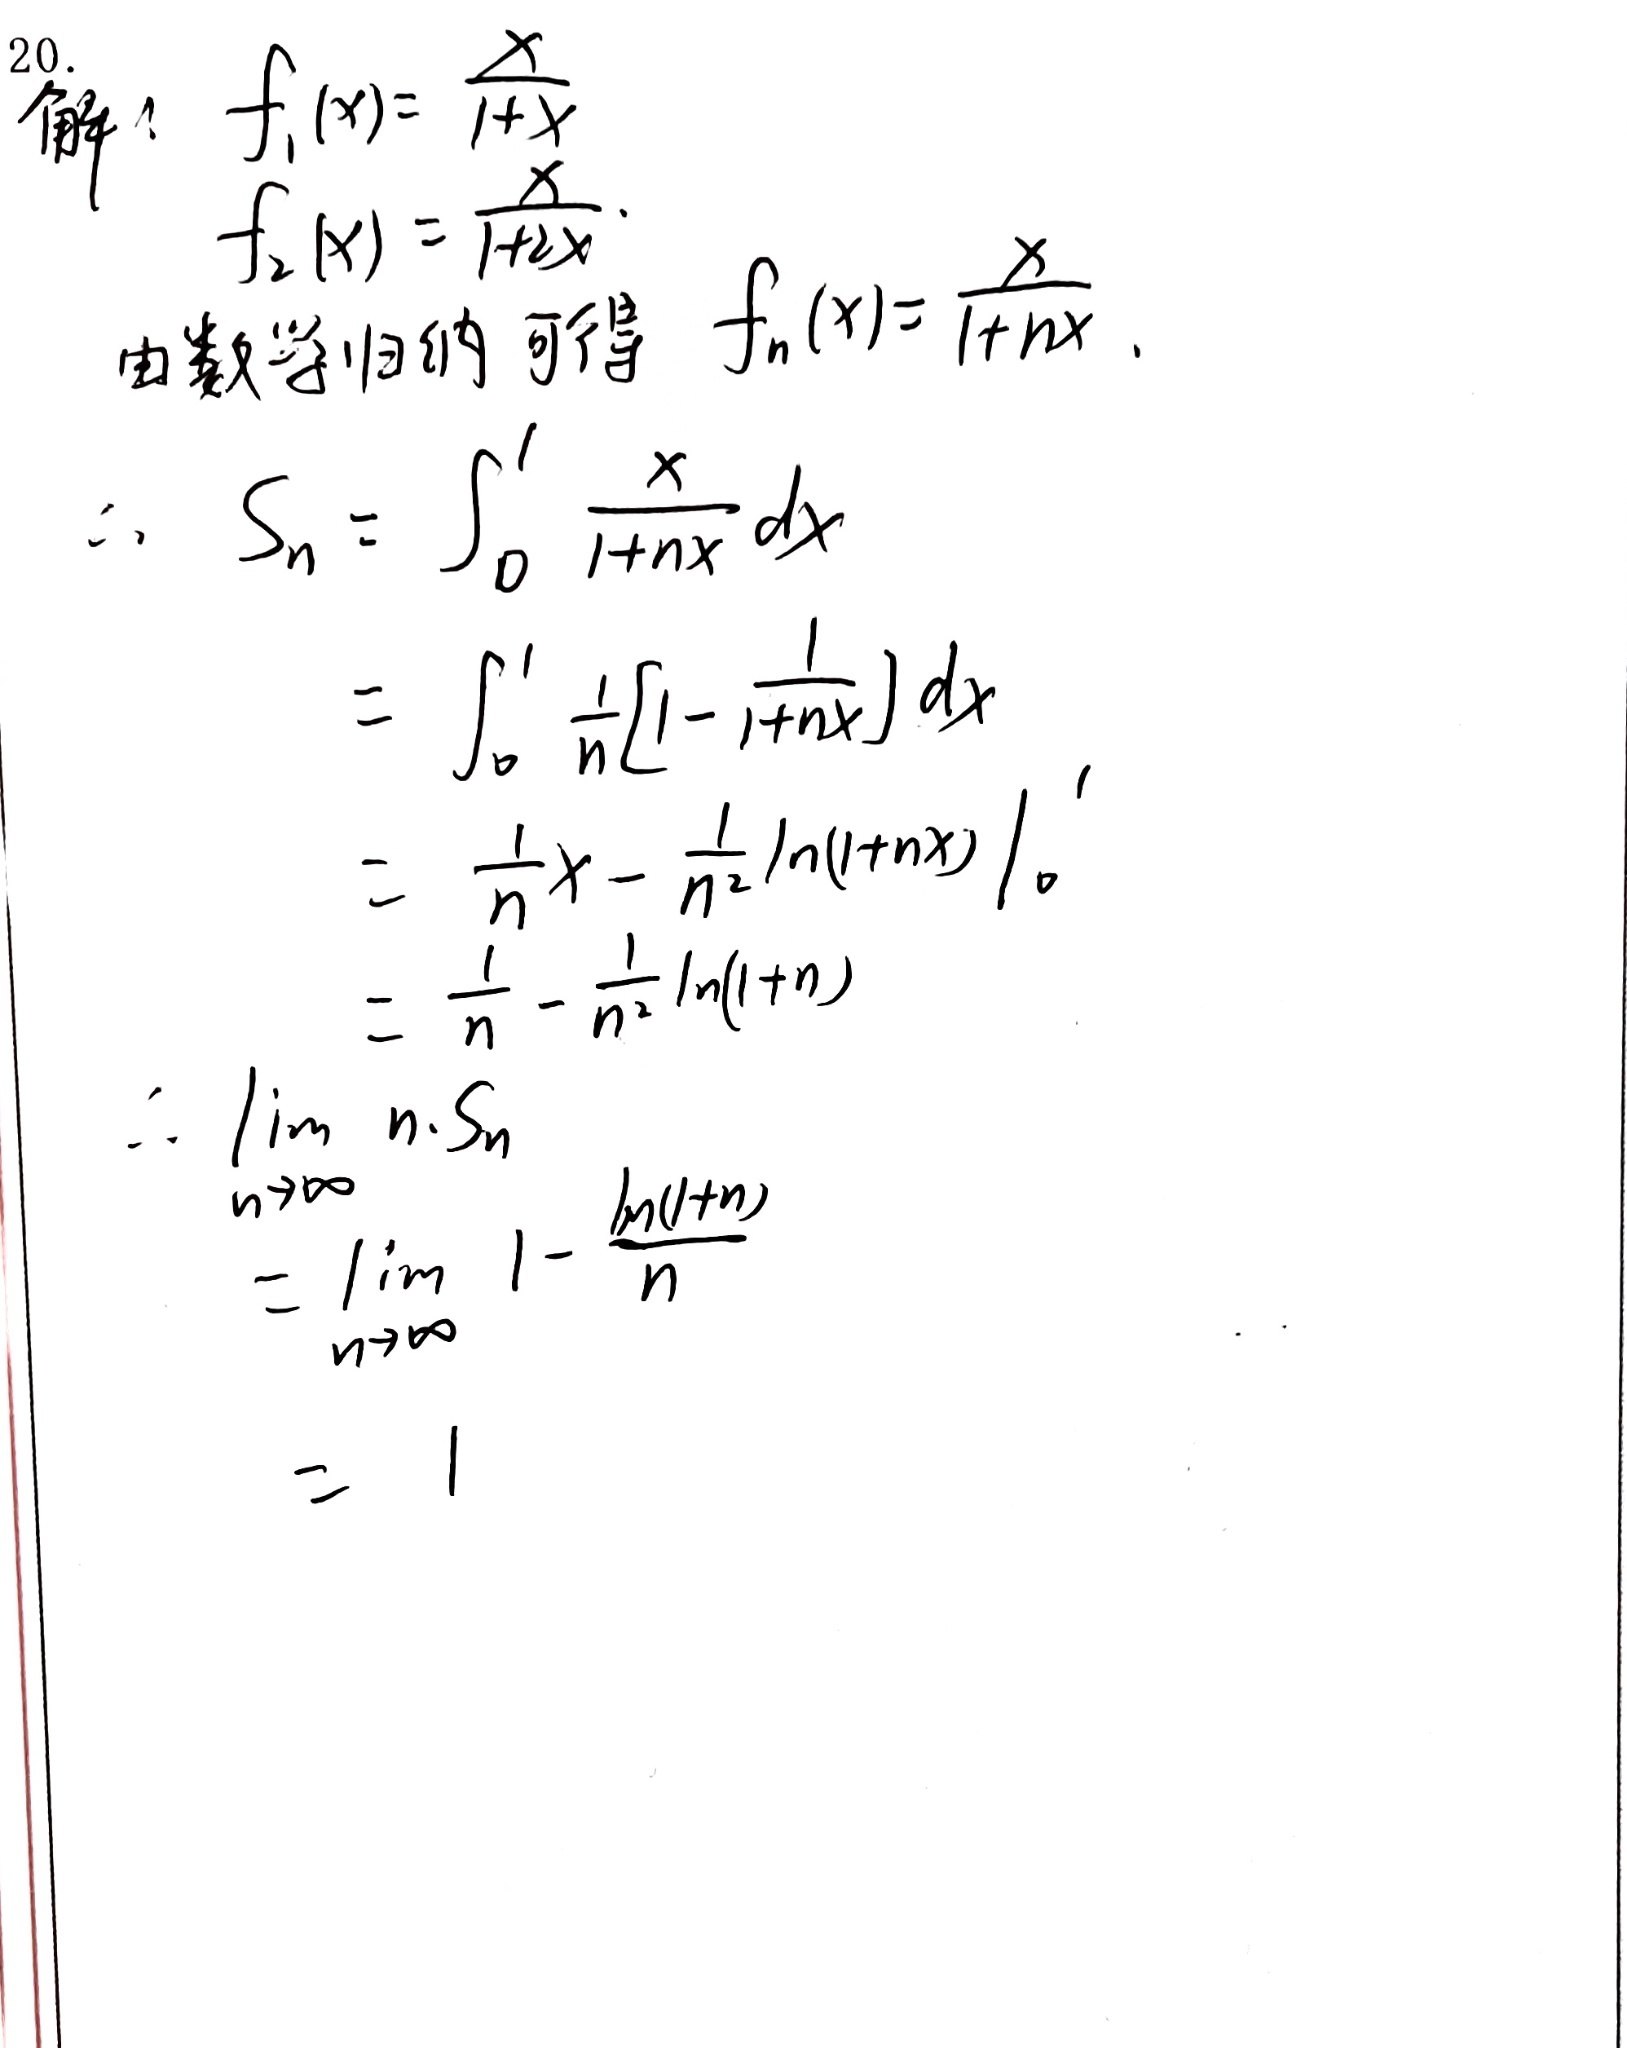 20.
解: f₁(x) = x/(1+x)
f₂(x) = x/(1+2x).
由数学归纳可得 fₙ(x) = x/(1+nx).
∴ Sₙ = ∫₀¹ x/(1+nx) dx
= ∫₀¹ 1/n [1 - 1/(1+nx)] dx
= 1/n x - 1/n² ln(1+nx) |₀¹
= 1/n - 1/n² ln(1+n)
∴ lim n→∞ n·Sₙ
= lim n→∞ 1 - ln(1+n)/n
= 1